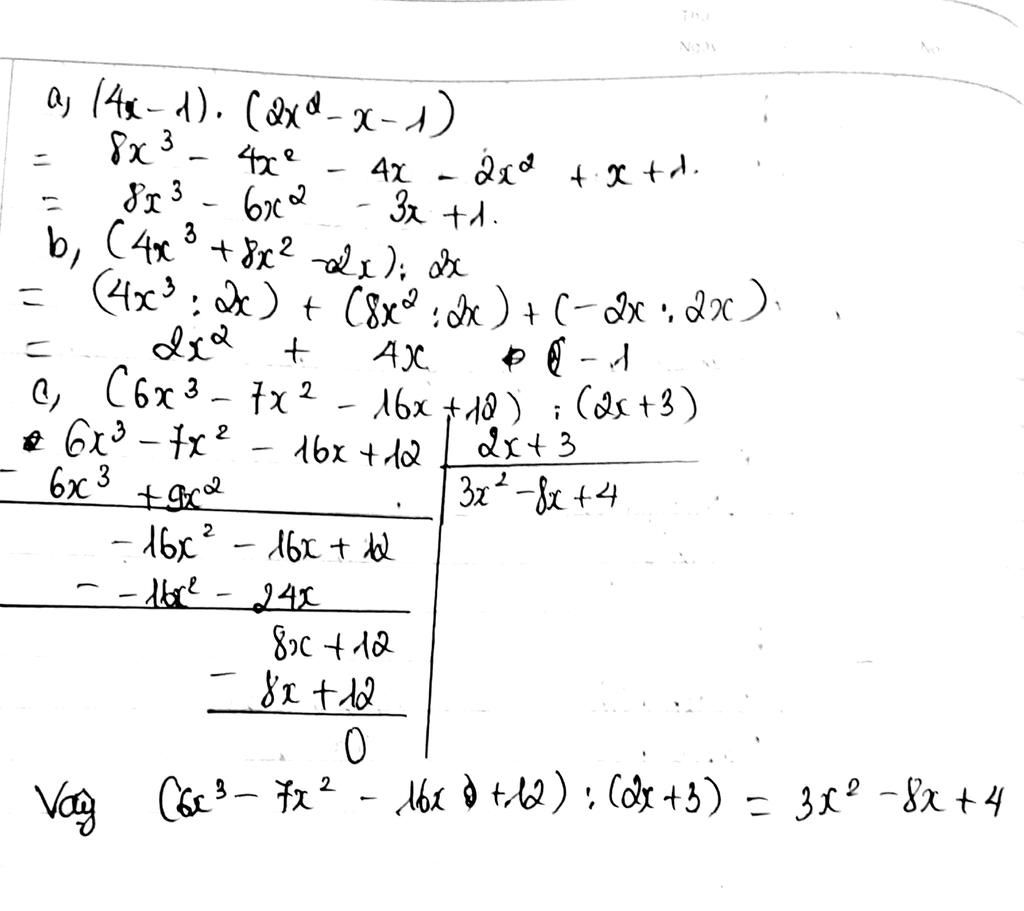 a, (4x - 1). (2x² - x - 1)
= 8x³ - 4x² - 4x - 2x² + x + 1.
= 8x³ - 6x² - 3x + 1.
b, (4x³ + 8x² - 2x) : 2x
= (4x³ : 2x) + (8x² : 2x) + (-2x : 2x)
= 2x² + 4x - 1
c, (6x³ - 7x² - 16x + 12) : (2x + 3)
6x³ - 7x² - 16x + 12 | 2x + 3
- 6x³ + 9x² | 3x² - 8x + 4
-16x² - 16x + 12
- -16x² - 24x
8x + 12
- 8x + 12
0
Vậy (6x³ - 7x² - 16x + 12) : (2x + 3) = 3x² - 8x + 4